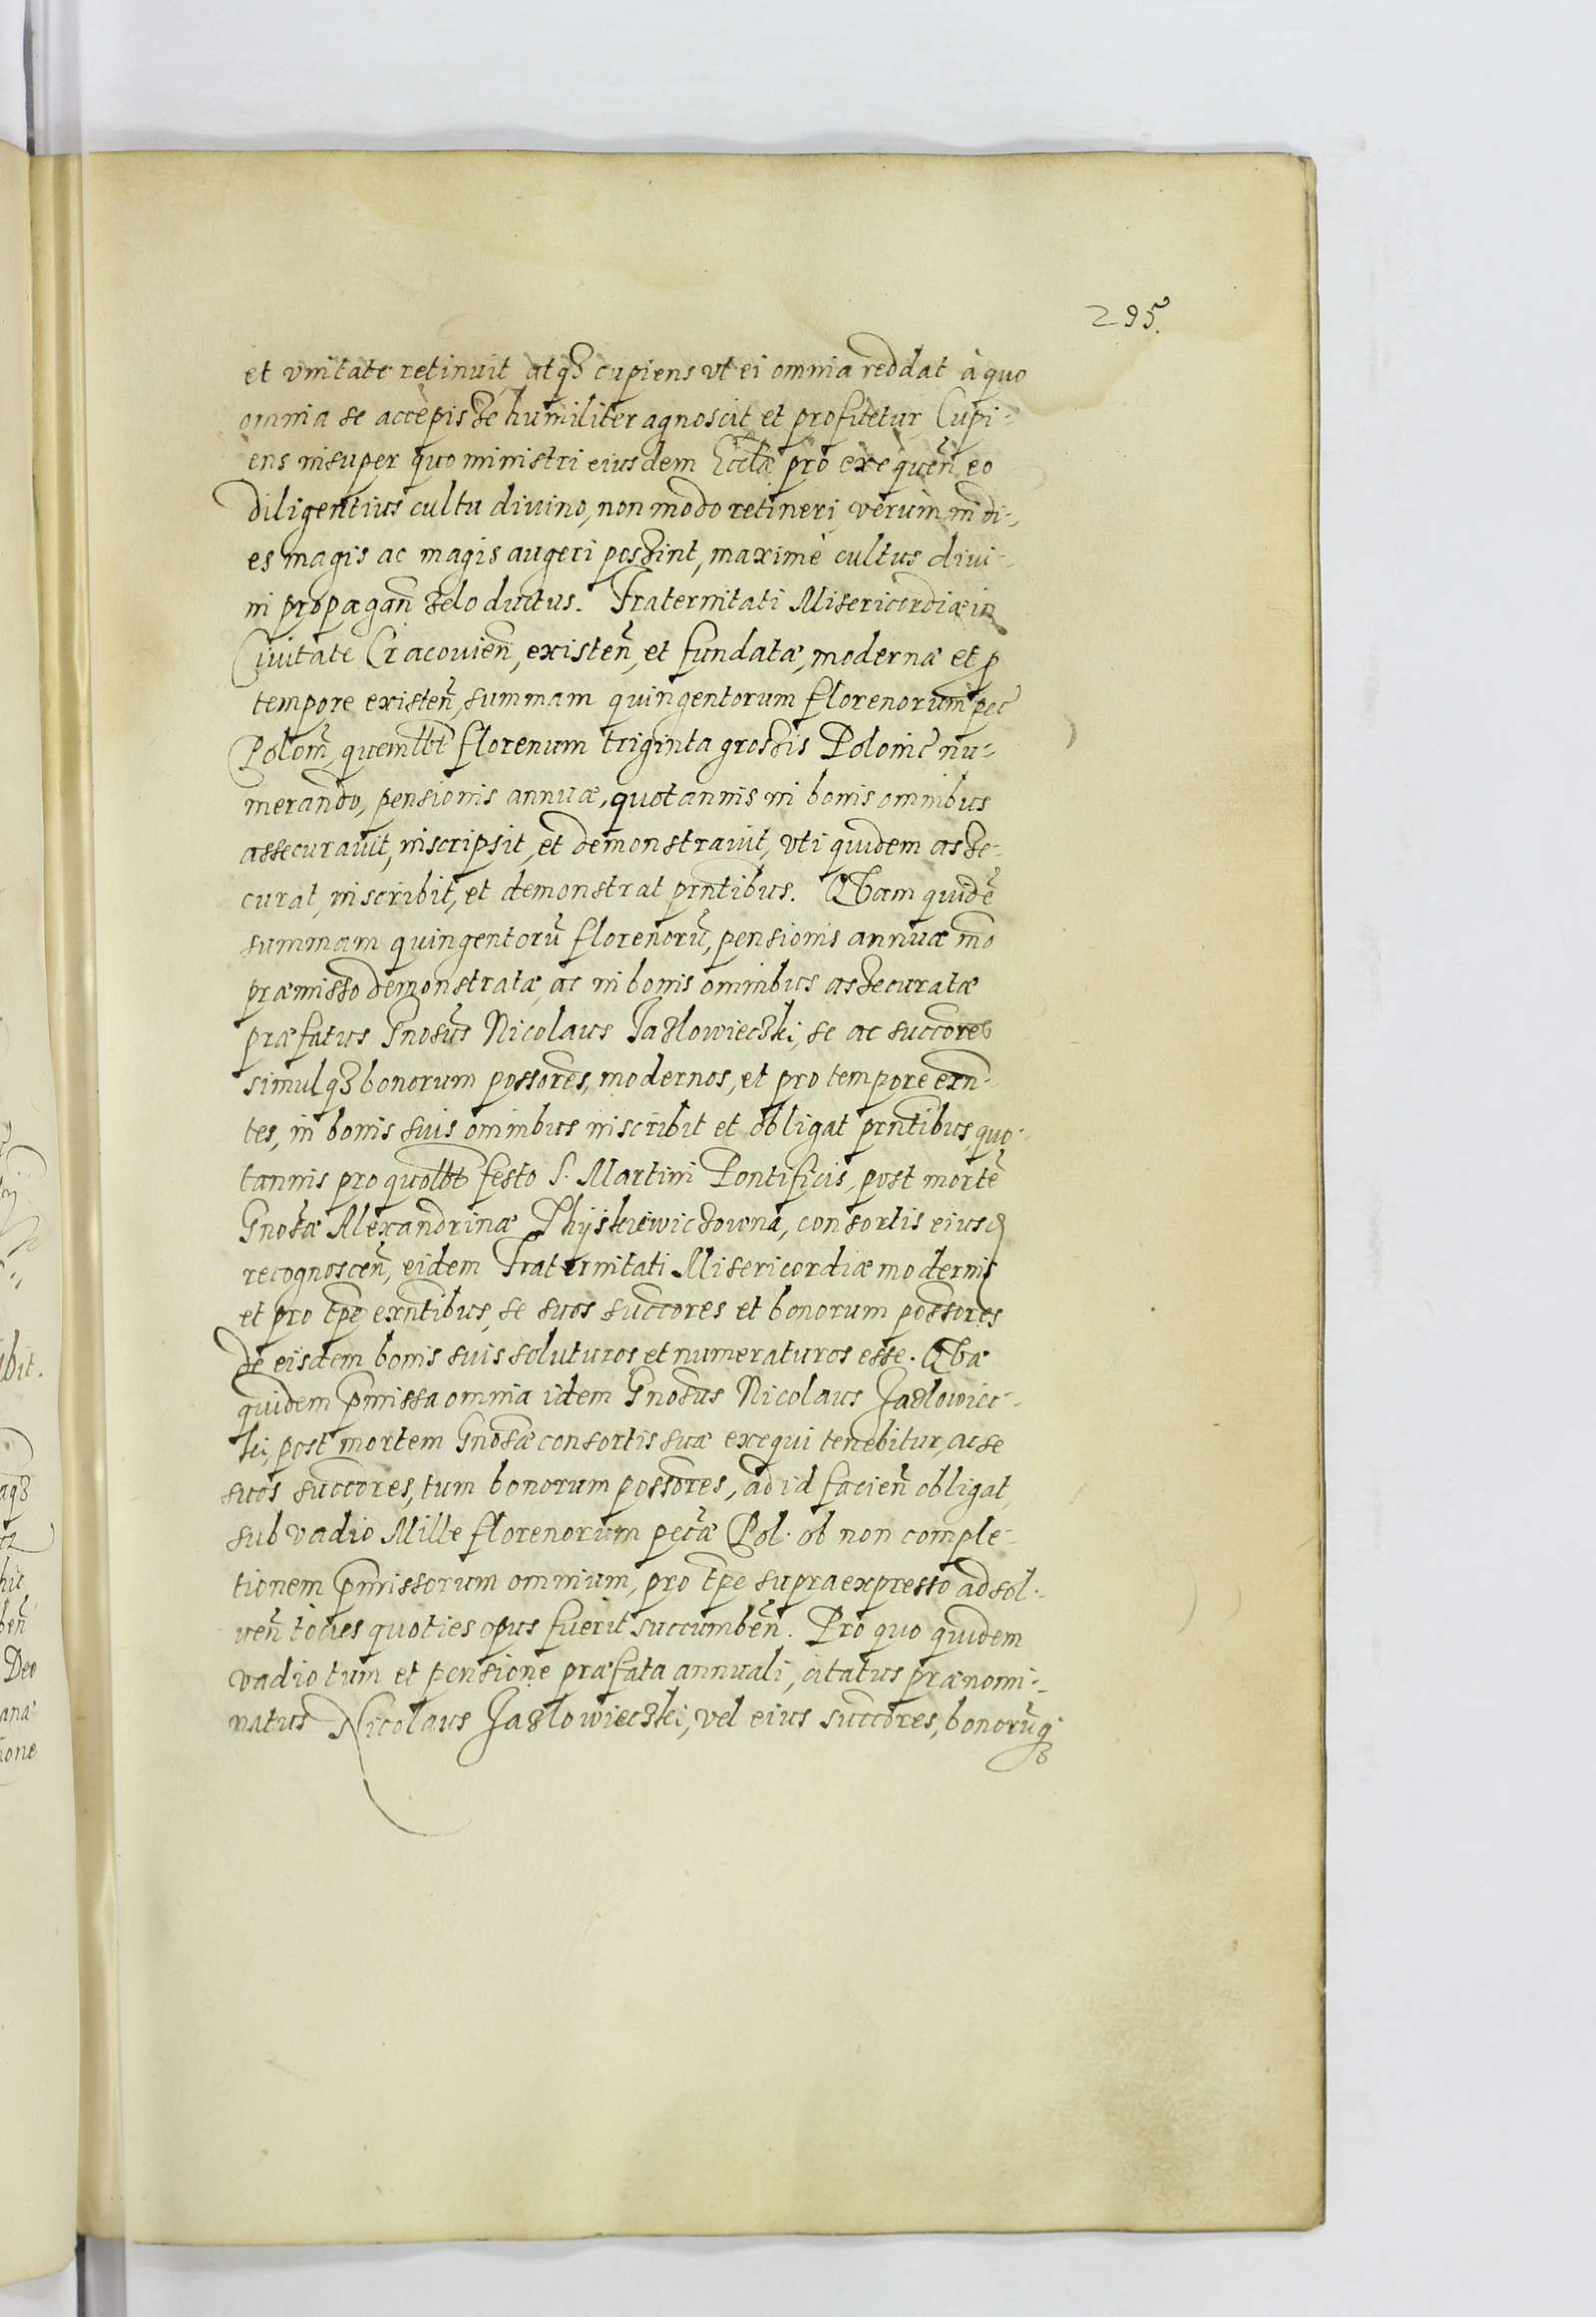 295.
et vnitate retinuit, atq3 cupiens vt ei omnia reddat à quo
omnia se accepisse humiliter agnoscit et profitetur, Cupi-
ens insuper quo ministri eiusdem Eccłæ pro exequeñ eo
diligentius cultu diuino, non modo retineri, verùm in di-
es magis ac magis augeri possint, maximè cultus diui-
ni propagan̄ zelo ductus. Fraternitati Misericordiæ in
Ciuitate Cracouien̄, existen̄, et fundatæ, modernæ et p
tempore existen̄, summam quingentorum florenorum pec̄
Polon̄, quemlbt florenum triginta grossis Polonic̄ nu-
merando, pensionis annuæ, quotannis in bonis omnibus
assecurauit, inscripsit, et demonstrauit, vti quidem asse-
curat, inscribit, et demonstrat prn̄tibus. Quam quidē
summam quingentorū florenorū, pensionis annuæ mō
præmisso demonstratæ, ac in bonis omnibus assecuratæ
præfatus Gnosus Nicolaus Jazlowieczki, se ac succores
simulq3 bonorum possores, modernos, et pro tempore exn̄-
tes, in bonis suis omnibus inscribit et obligat prn̄tibus, quo-
tannis pro quolbt festo S. Martini Pontificis, post mortē
Gnosæ Alexandrinæ Thyskiewiczowna, consortis eiusd
recognoscen̄, eidem Fraternitati Misericordiæ modernis
et pro tp̄e exn̄tibus, se suos succores et bonorum possores
de eisdem bonis suis soluturos et numeraturos esse. Quæ
quidem p̄missa omnia idem Gnosus Nicolaus Jazlowiec-
ki, post mortem Gnosæ consortis suæ exequi tenebitur, ac se
suos succores, tum bonorum possores, ad id facien̄ obligat,
sub vadio Mille florenorum pecæ Pol. ob non comple-
tionem p̄missorum omnium, pro tp̄e supraexpresso ad sol-
uen̄ toties quoties opus fuerit succumben̄. Pro quo quidem
vadio tum et pensione præfata annuali, citatus prænomi-
natus Nicolaus Jazlowieczki, vel eius succores, bonorūq3